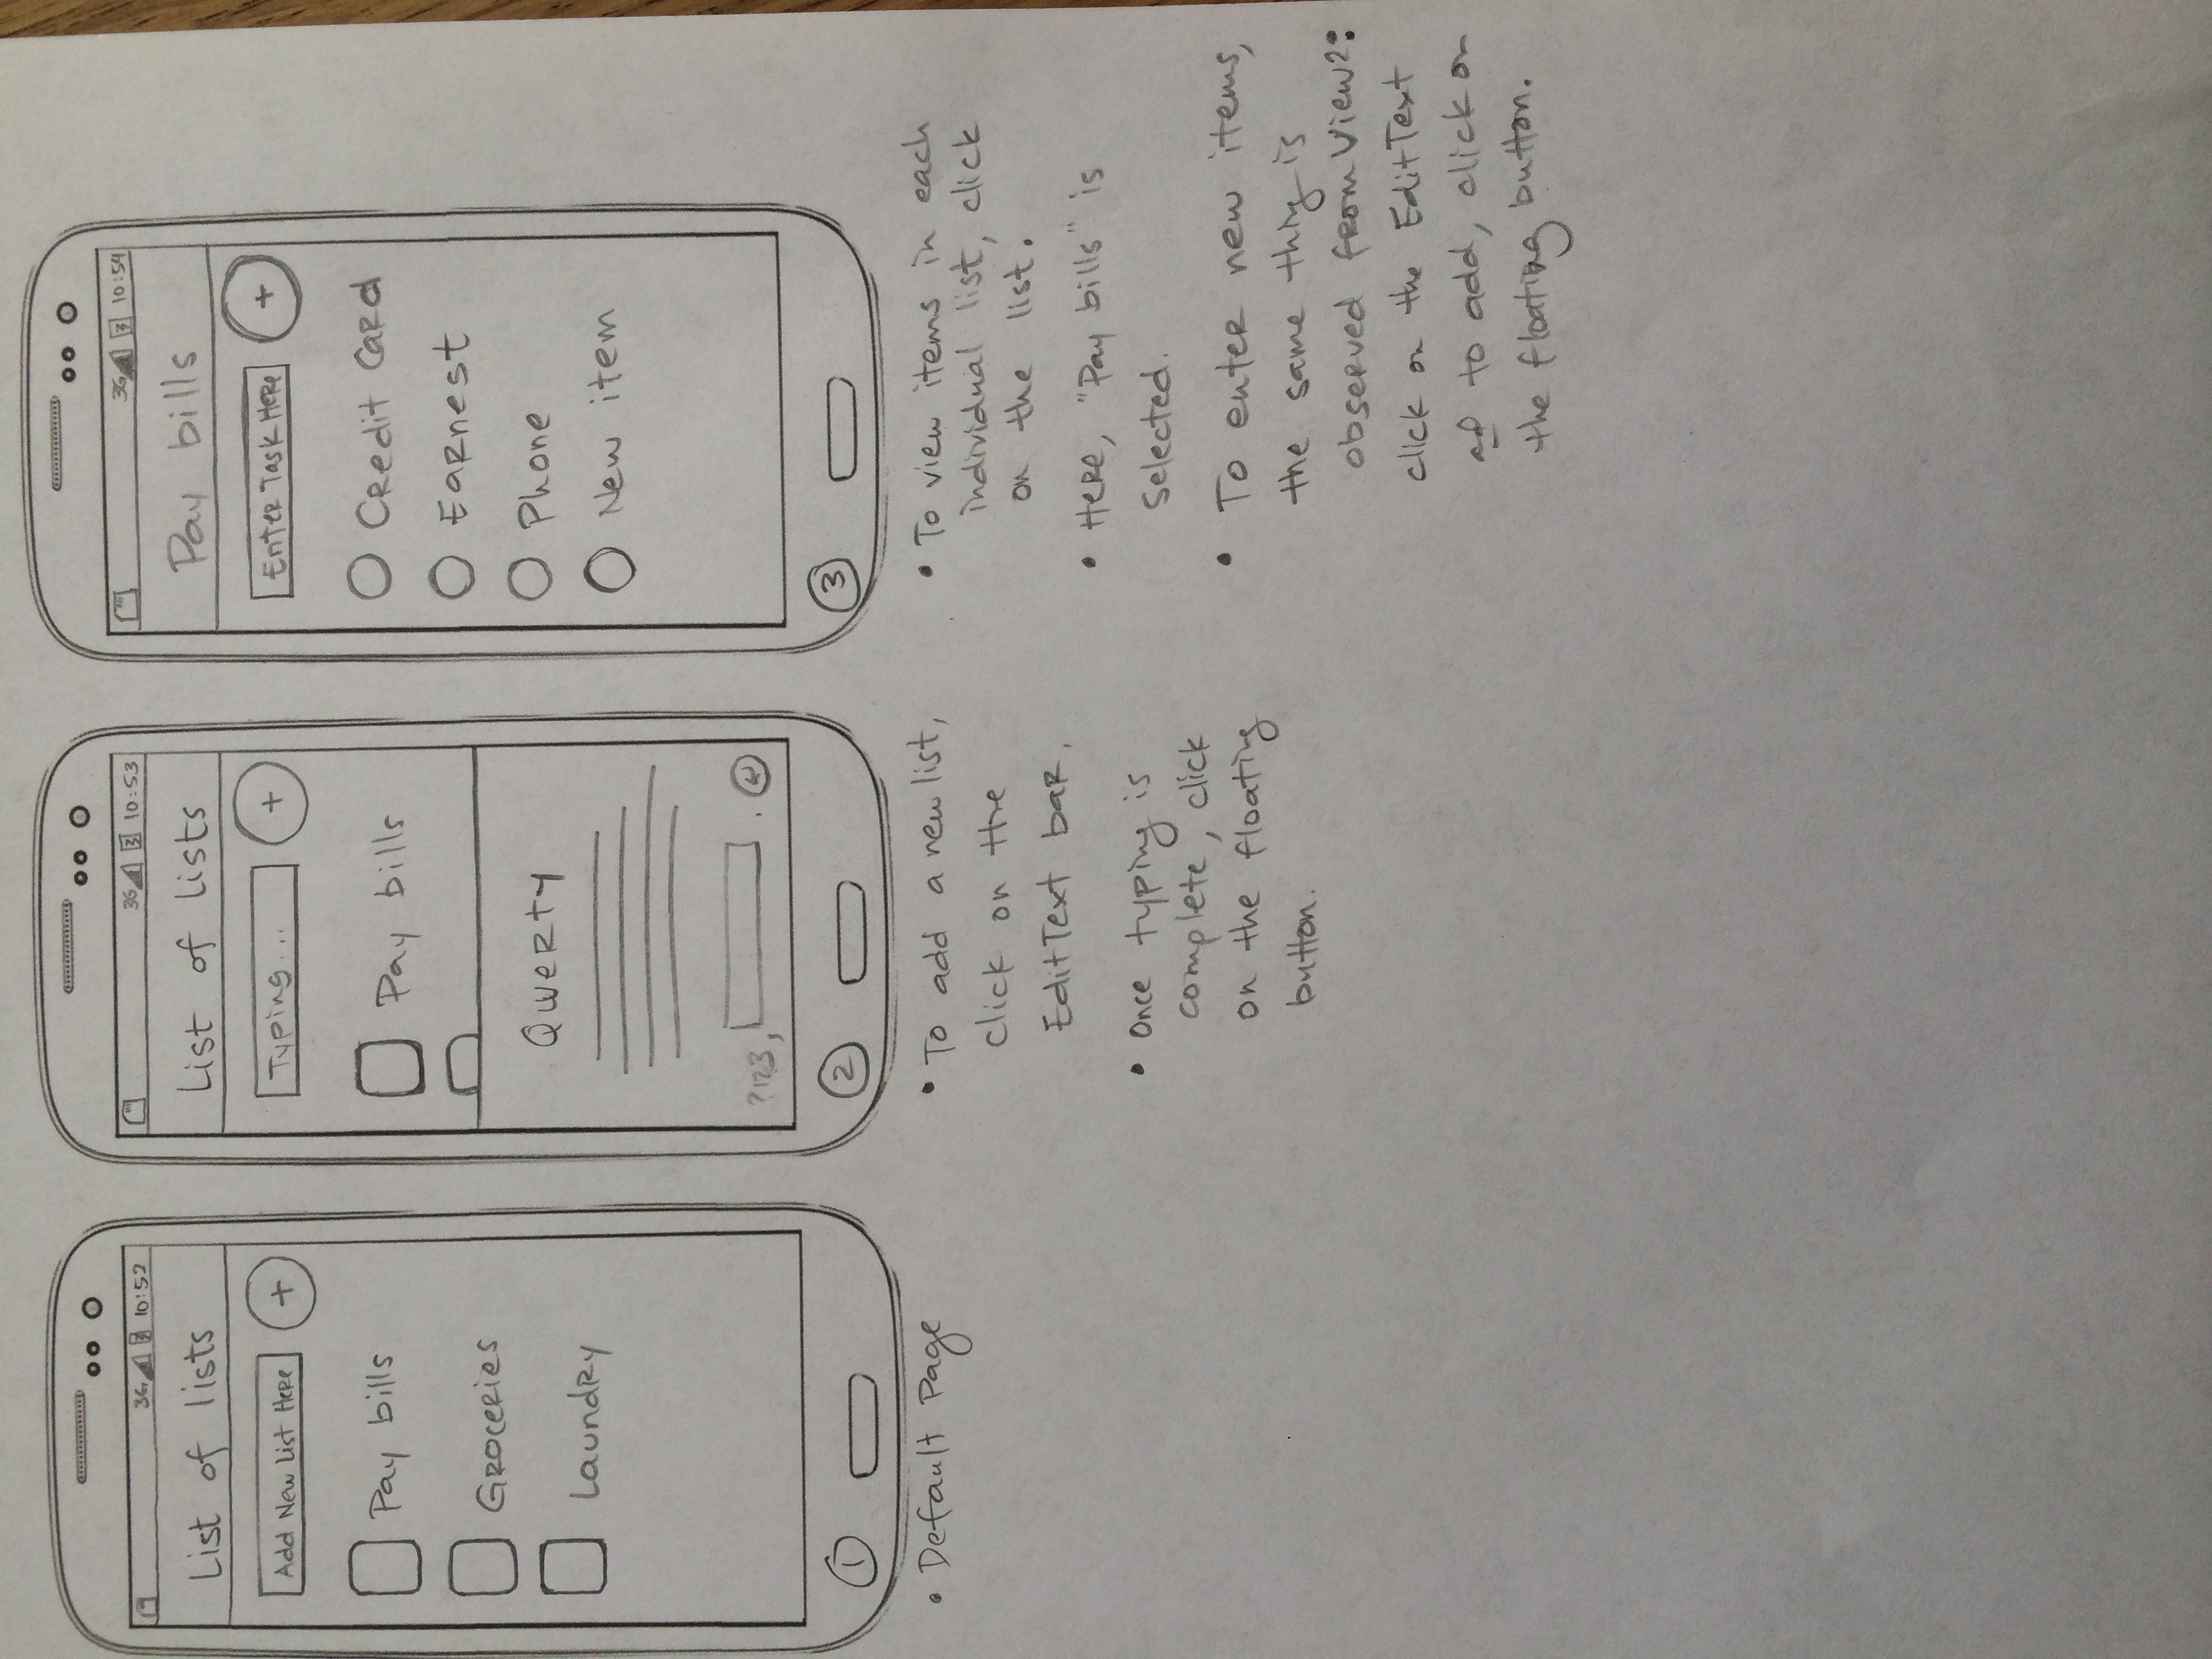 3G 10:52
List of lists
Add New List Here +
Pay bills
Groceries
Laundry
1
• Default Page
3G 10:53
List of lists
Typing... +
Pay bills
Qwerty
?123, .
2
• To add a new list,
click on the
EditText bar.
• Once typing is
complete, click
on the floating
button.
3G 10:54
Pay bills
Enter Task Here +
Credit Card
Earnest
Phone
New item
3
• To view items in each
individual list, click
on the list.
• Here, "Pay bills" is
selected.
• To enter new items,
the same thing is
observed from View 2:
click on the EditText
and to add, click on
the floating button.